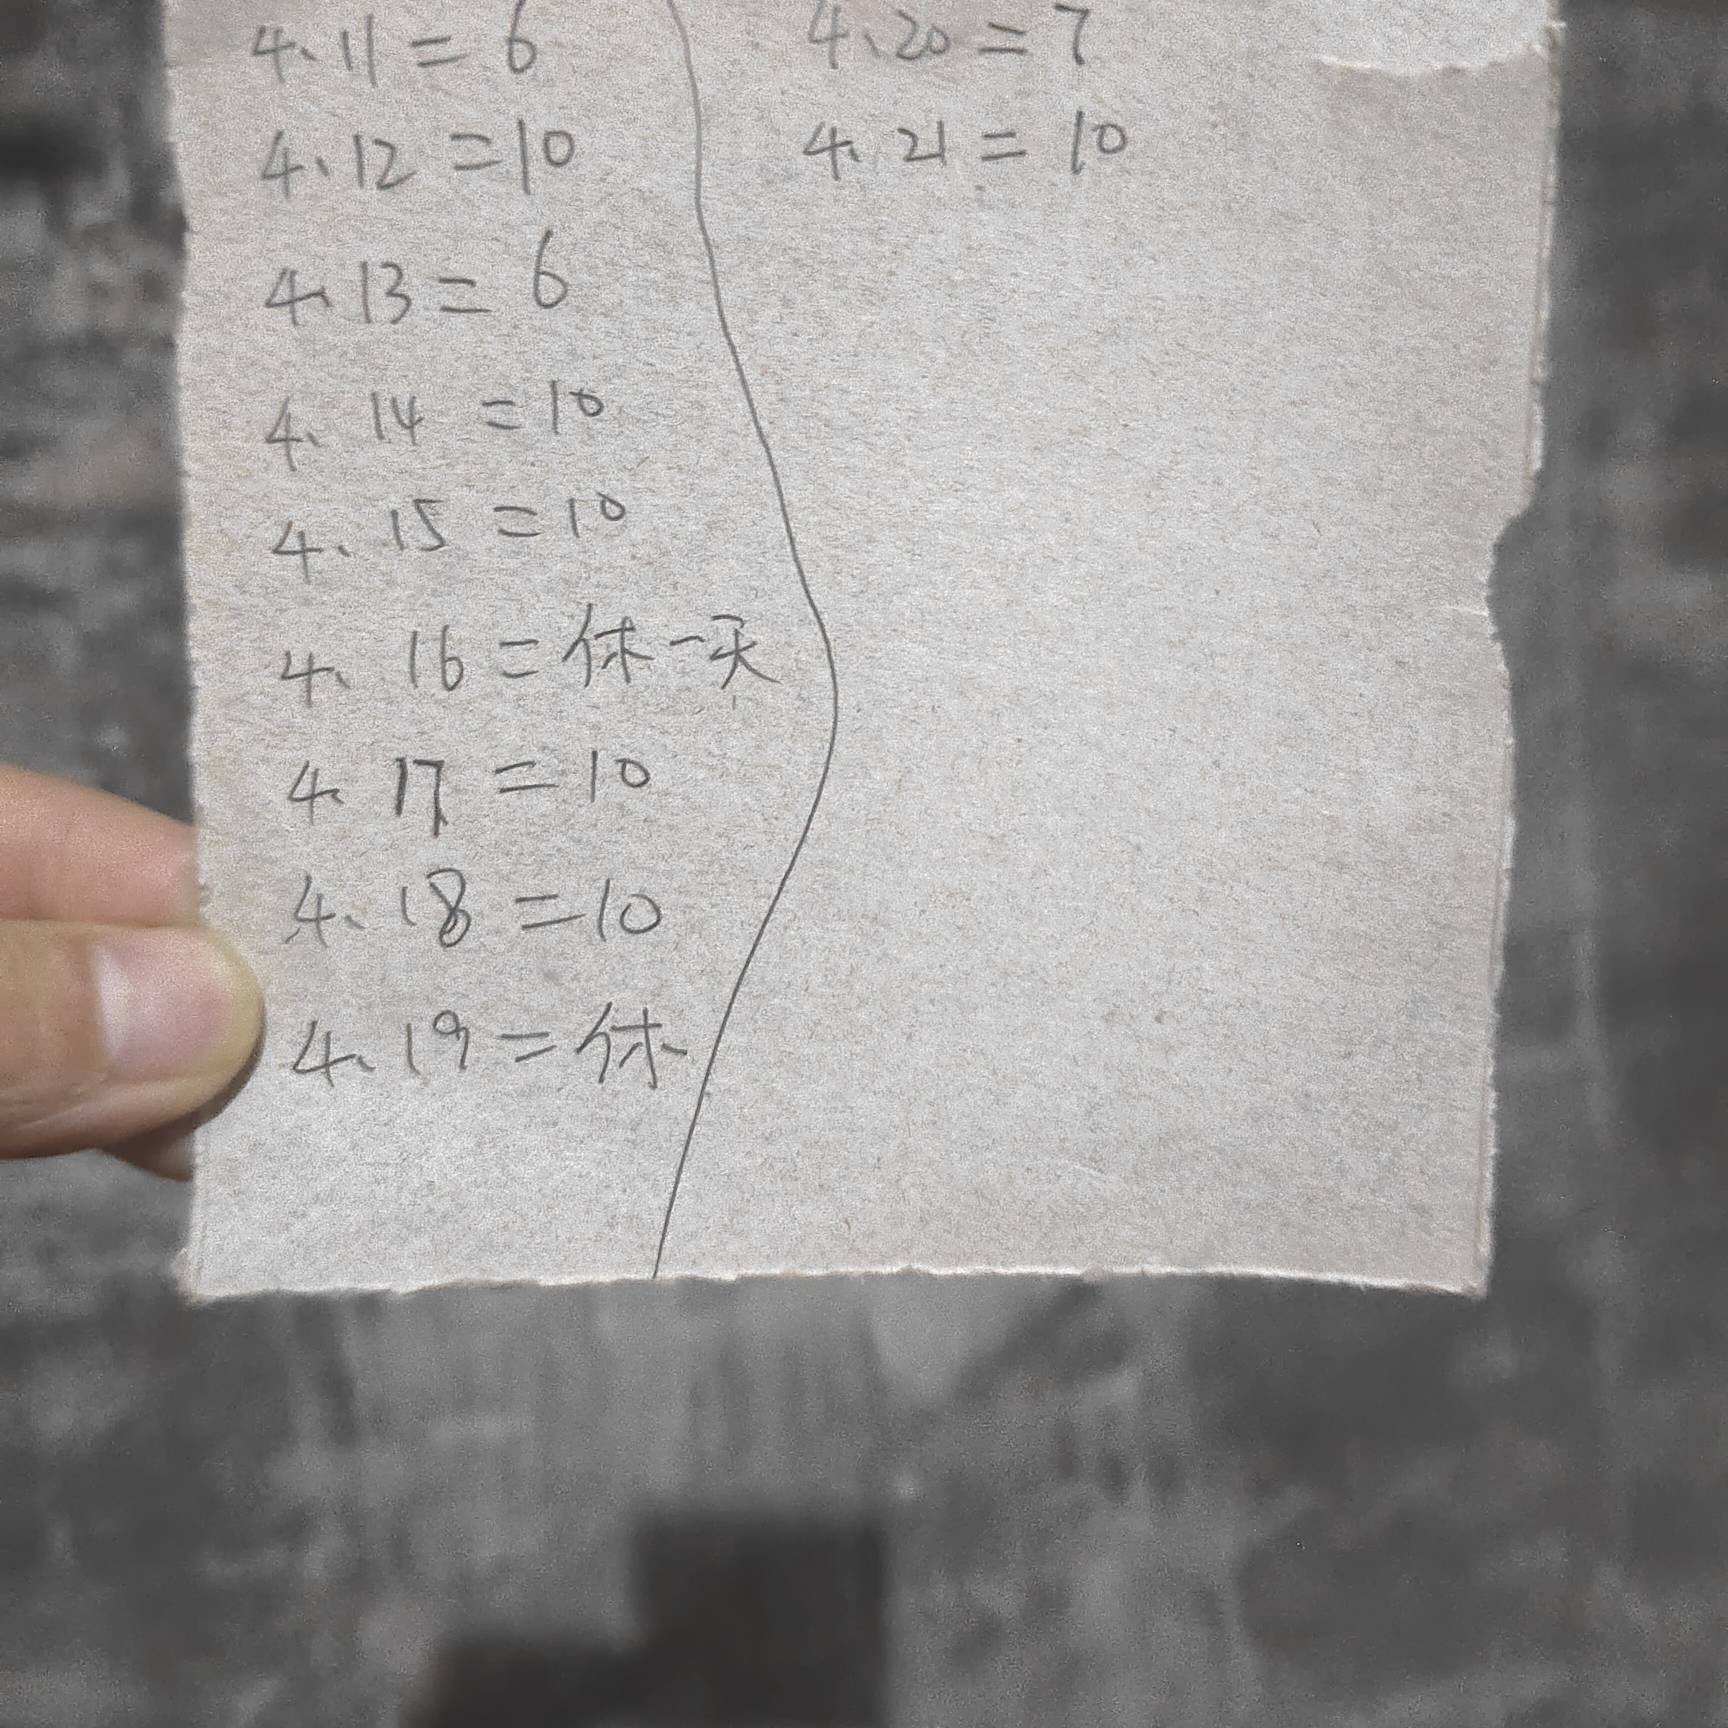 4、11=6
4、12=10
4、13=6
4、14=10
4、15=10
4、16=休一天
4、17=10
4、18=10
4、19=休
4、20=7
4、21=10